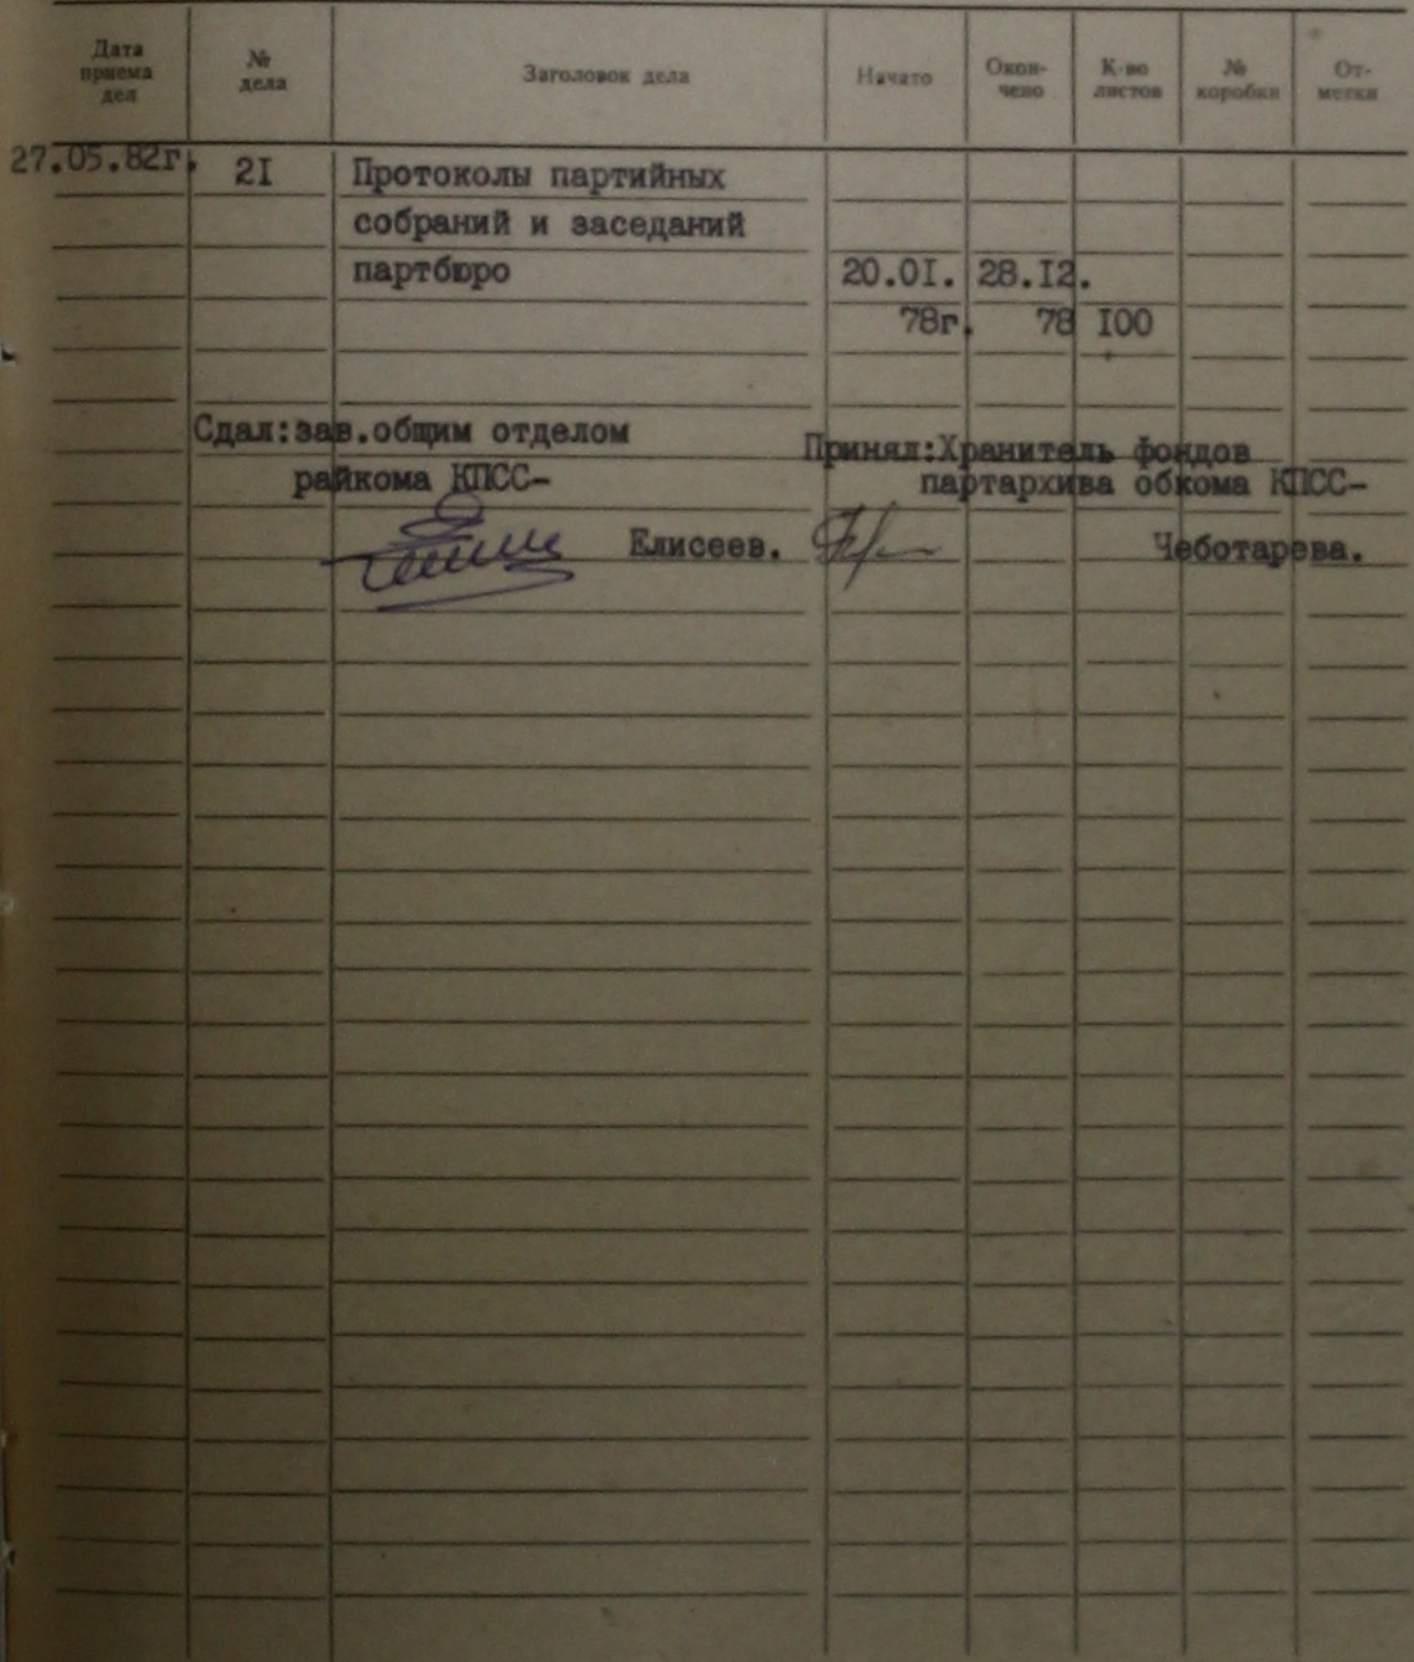 Дата приема дел № дела Заголовок дела Начато Окон- чено К-во листов № коробки От- метки
27.05.82г. 2I Протоколы партийных
собраний и заседаний
партбюро 20.0I. 28.I2.
78г. 78 I00
Сдал:зав.общим отделом Принял:Хранитель фондов
райкома КПСС- партархива обкома КПСС-
Елисеев. Чеботарева.